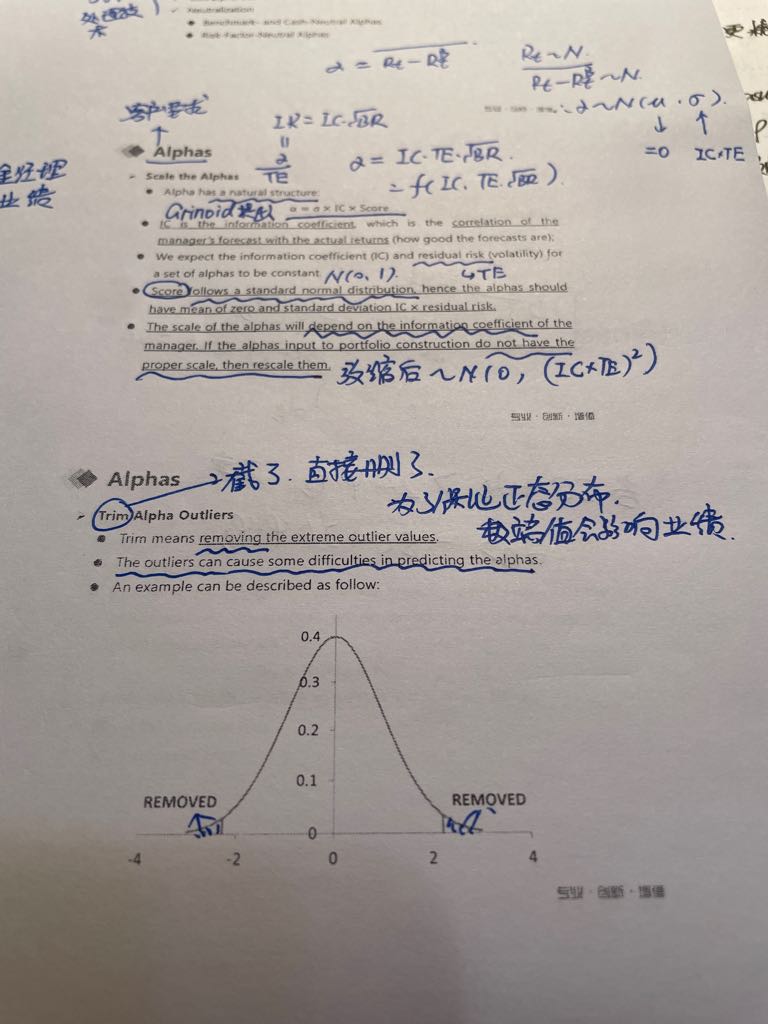 处理技
术
Neutralization
Benchmark- and Cash-Neutral Alphas
Risk-Factor-Neutral Alphas
α = Rt − RtB
Rt ~ N
Rt − RtB ~ N.
∴ α ~ N(μ · σ).
=0 IC×TE
IR = IC·√BR
=
α
TE
α = IC·TE·√BR.
= f(IC, TE, √BR).
Alphas
Scale the Alphas
Alpha has a natural structure:
Grinold
α = σ × IC × Score
IC is the information coefficient, which is the correlation of the
manager's forecast with the actual returns (how good the forecasts are);
We expect the information coefficient (IC) and residual risk (volatility) for
a set of alphas to be constant.
N(0, 1).
↳TE
Score follows a standard normal distribution, hence the alphas should
have mean of zero and standard deviation IC × residual risk.
The scale of the alphas will depend on the information coefficient of the
manager. If the alphas input to portfolio construction do not have the
proper scale, then rescale them.
放缩后 ~ N(0, (IC×TE)²)
业绩
专业 · 创新 · 增值
Alphas
截了. 直接删了.
为了保证正态分布.
极端值会影响业绩.
Trim Alpha Outliers
Trim means removing the extreme outlier values.
The outliers can cause some difficulties in predicting the alphas.
An example can be described as follow:
0.4
0.3
0.2
0.1
0
REMOVED
REMOVED
-4 -2 0 2 4
专业 · 创新 · 增值